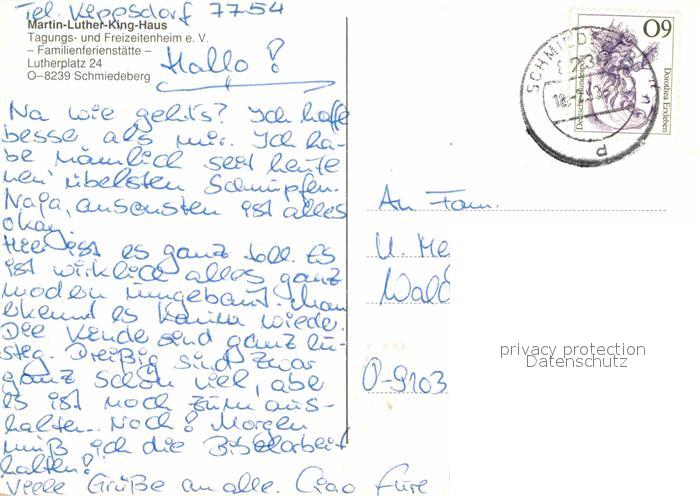 Tel. Kippsdorf 7754
Martin-Luther-King-Haus
Tagungs- und Freizeitenheim e. V.
– Familienferienstätte –
Lutherplatz 24
O–8239 Schmiedeberg
Hallo!
Na wie gehts? Ich hoffe
besser als mir. Ich ha-
be nämlich seit heute
nen übelsten Schnupfen.
Naja, ansonsten ist alles
okay.
Hier ist es ganz toll. Es
ist wirklich alles ganz
modern umgebaut. Man
erkennt es kaum wieder.
Die Kinder sind ganz lu-
stig. Dreißig sind zwar
ganz schön viel, aber
es ist noch zum aus-
halten. Noch! Morgen
muß ich die Bibelarbeit
halten!
Viele Grüße an alle. Ciao
An Fam.
U. Me
Wald
O-9103
60
Deutsche Bundespost
Dorothea Erxleben
SCHMIED
privacy protection
Datenschutz